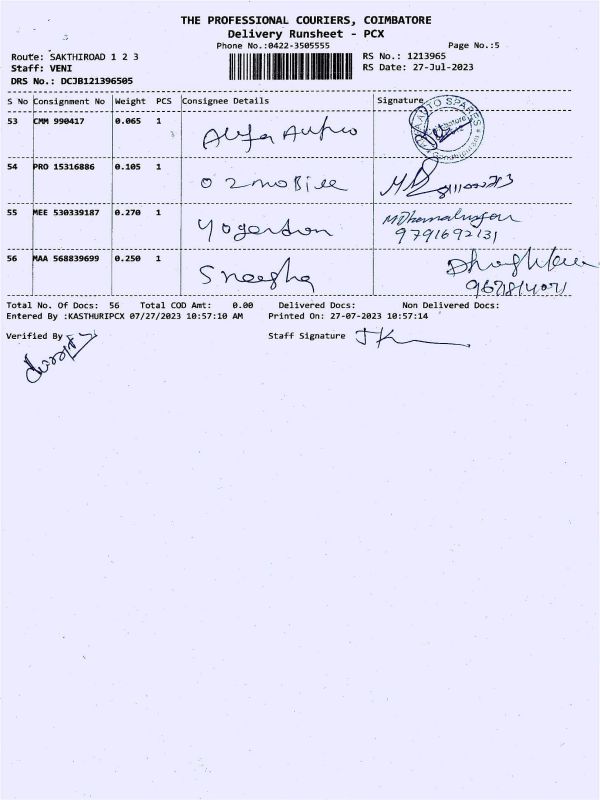 THE PROFESSIONAL COURIERS, COIMBATORE
Delivery Runsheet - PCX
Phone No.:0422-3505555 Page No.:5
Route: SAKTHIROAD 1 2 3 RS No.: 1213965
Staff: VENI RS Date: 27-Jul-2023
DRS No.: DCJB121396505
S No Consignment No Weight PCS Consignee Details Signature
53 CMM 990417 0.065 1
AUTO SPARES
54 PRO 15316886 0.105 1 O2 mobile
55 MEE 530339187 0.270 1 Yogendran
9791692131
56 MAA 568839699 0.250 1 Sneegha
Total No. Of Docs: 56 Total COD Amt: 0.00 Delivered Docs: Non Delivered Docs:
Entered By :KASTHURIPCX 07/27/2023 10:57:10 AM Printed On: 27-07-2023 10:57:14
Verified By Staff Signature